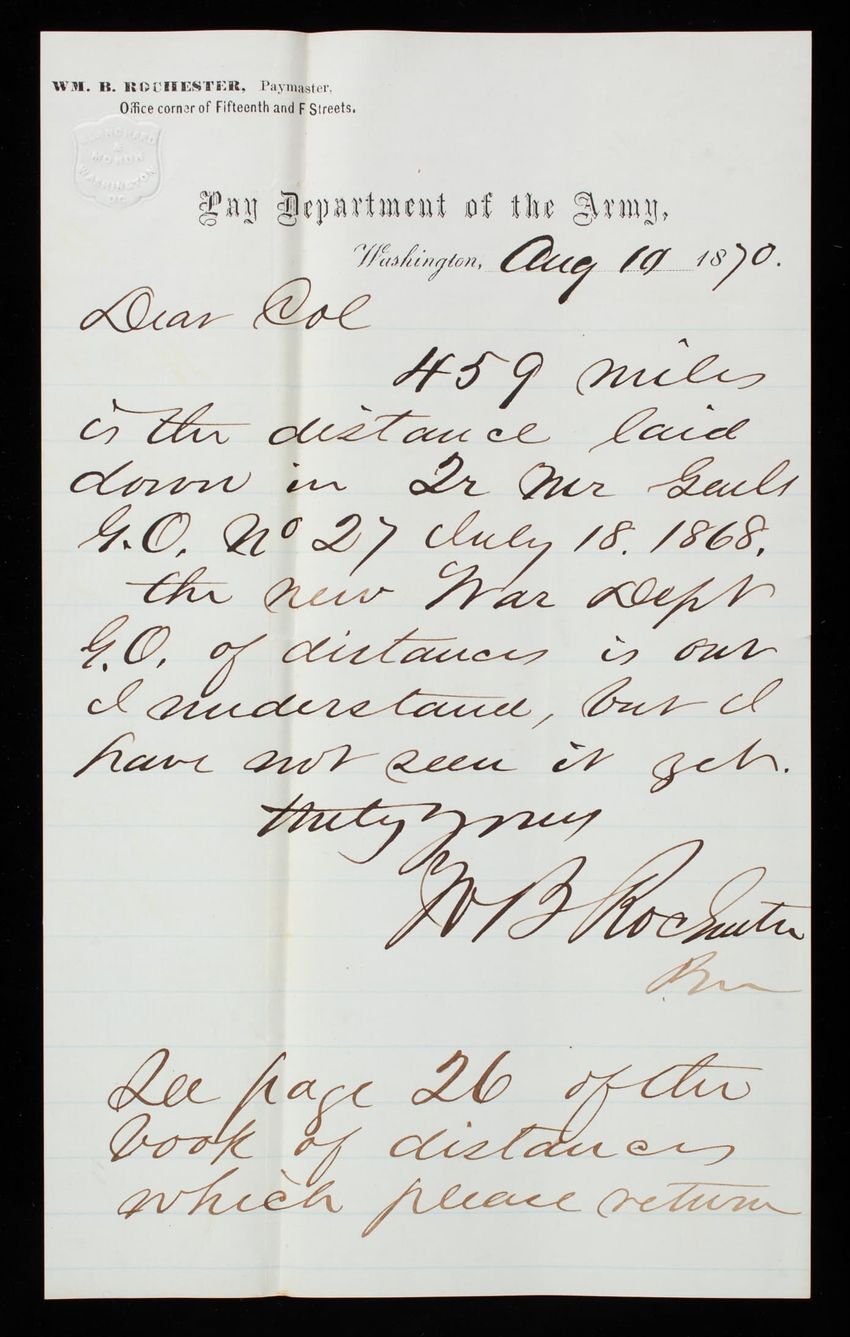 WM. B. ROCHESTER, Paymaster,
Office corner of Fifteenth and F Streets.
BLANCHARD
&
MOHUN
WASHINGTON
DC
Pay Department of the Army,
Washington, Aug 10 1870.
Dear Col
459 miles
is the distance laid
down in Qr Mr Genls
G.O. No 27 July 18. 1868.
the new War Dept
G.O. of distances is out
I understand, but I
have not seen it yet.
truly yours
W B Rochester
See page 26 of the
book of distances
which please return